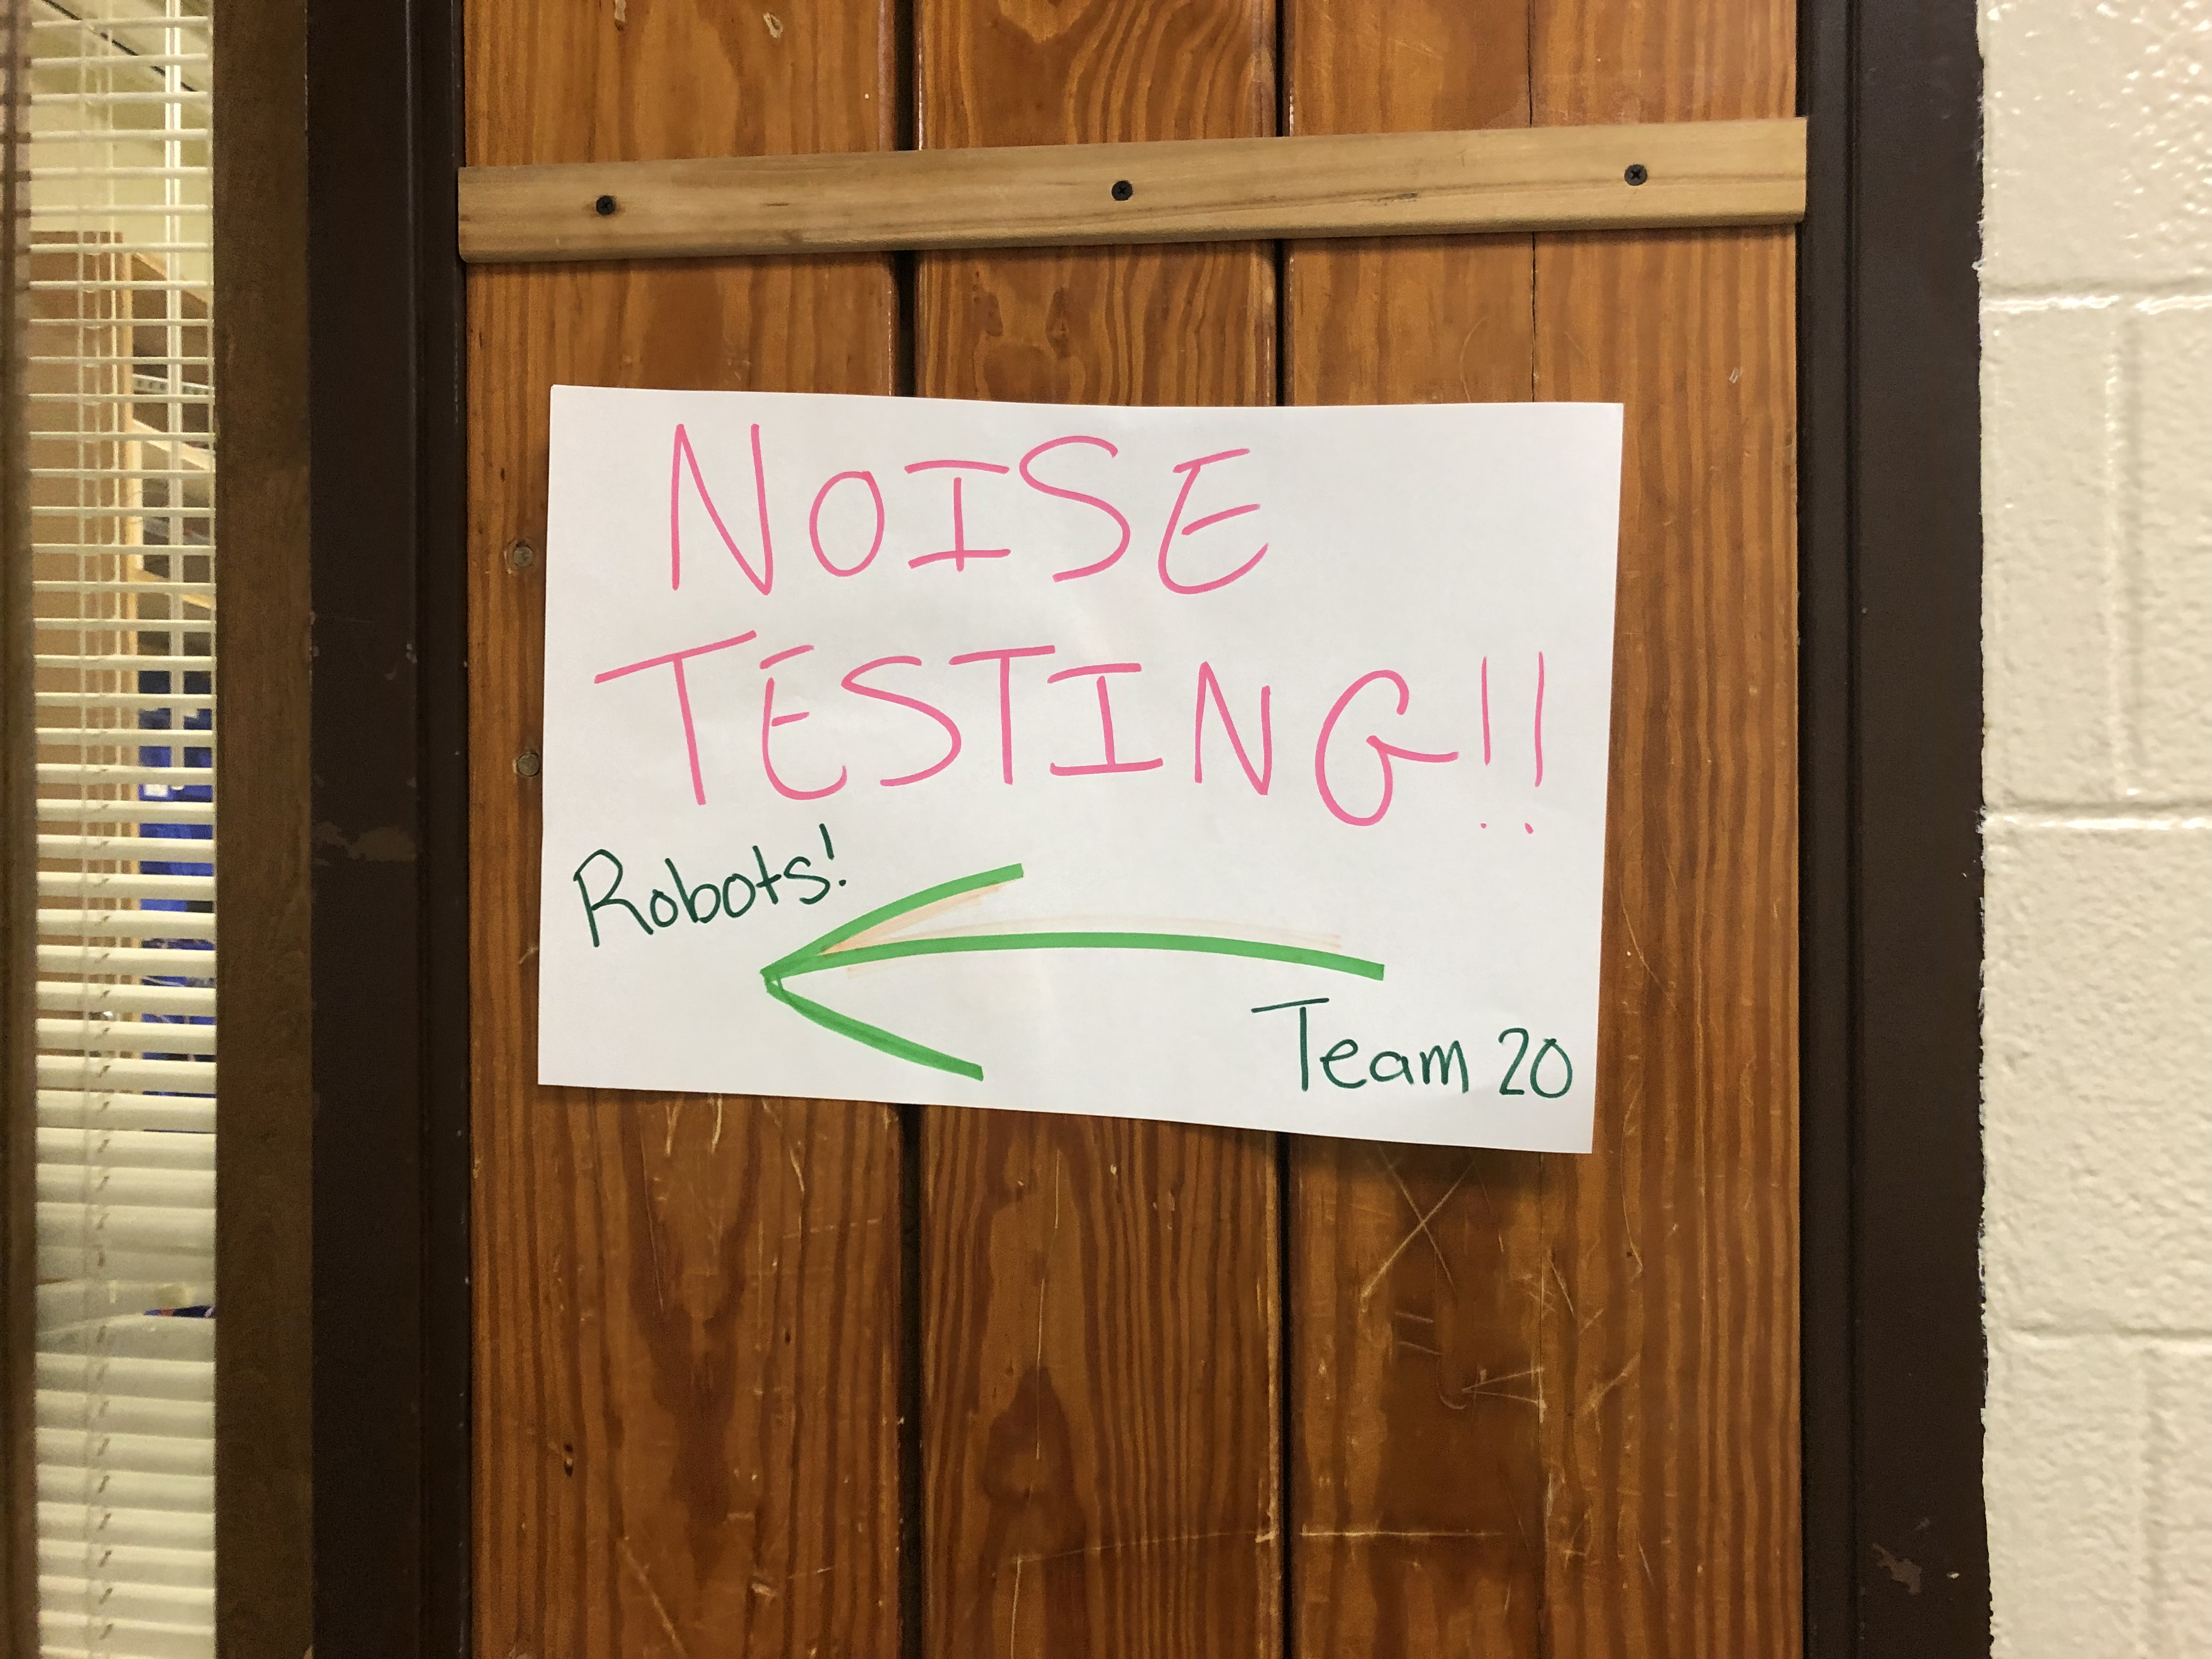 NOISE
TESTING!!
Robots!
Team 20